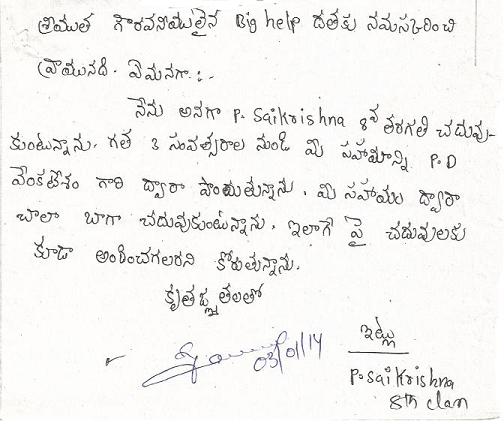 శ్రీయుత గౌరవనీయులైన Big help దాతకు నమస్కరించి
వ్రాయునది. ఏమనగా :-
నేను అనగా P. Saikrishna 8వ తరగతి చదువు-
కుంటున్నాను. గత 3 సంవత్సరాల నుండి మీ సహాయాన్ని P.D
వెంకటేశం గారి ద్వారా పొందుతున్నాను. మీ సహాయం ద్వారా
చాలా బాగా చదువుకుంటున్నాను. ఇలాగే పై చదువులకు
కూడా అందించగలరని కోరుతున్నాను.
కృతజ్ఞతలతో
ఇట్లు
03/01/14
P. Saikrishna
8th class